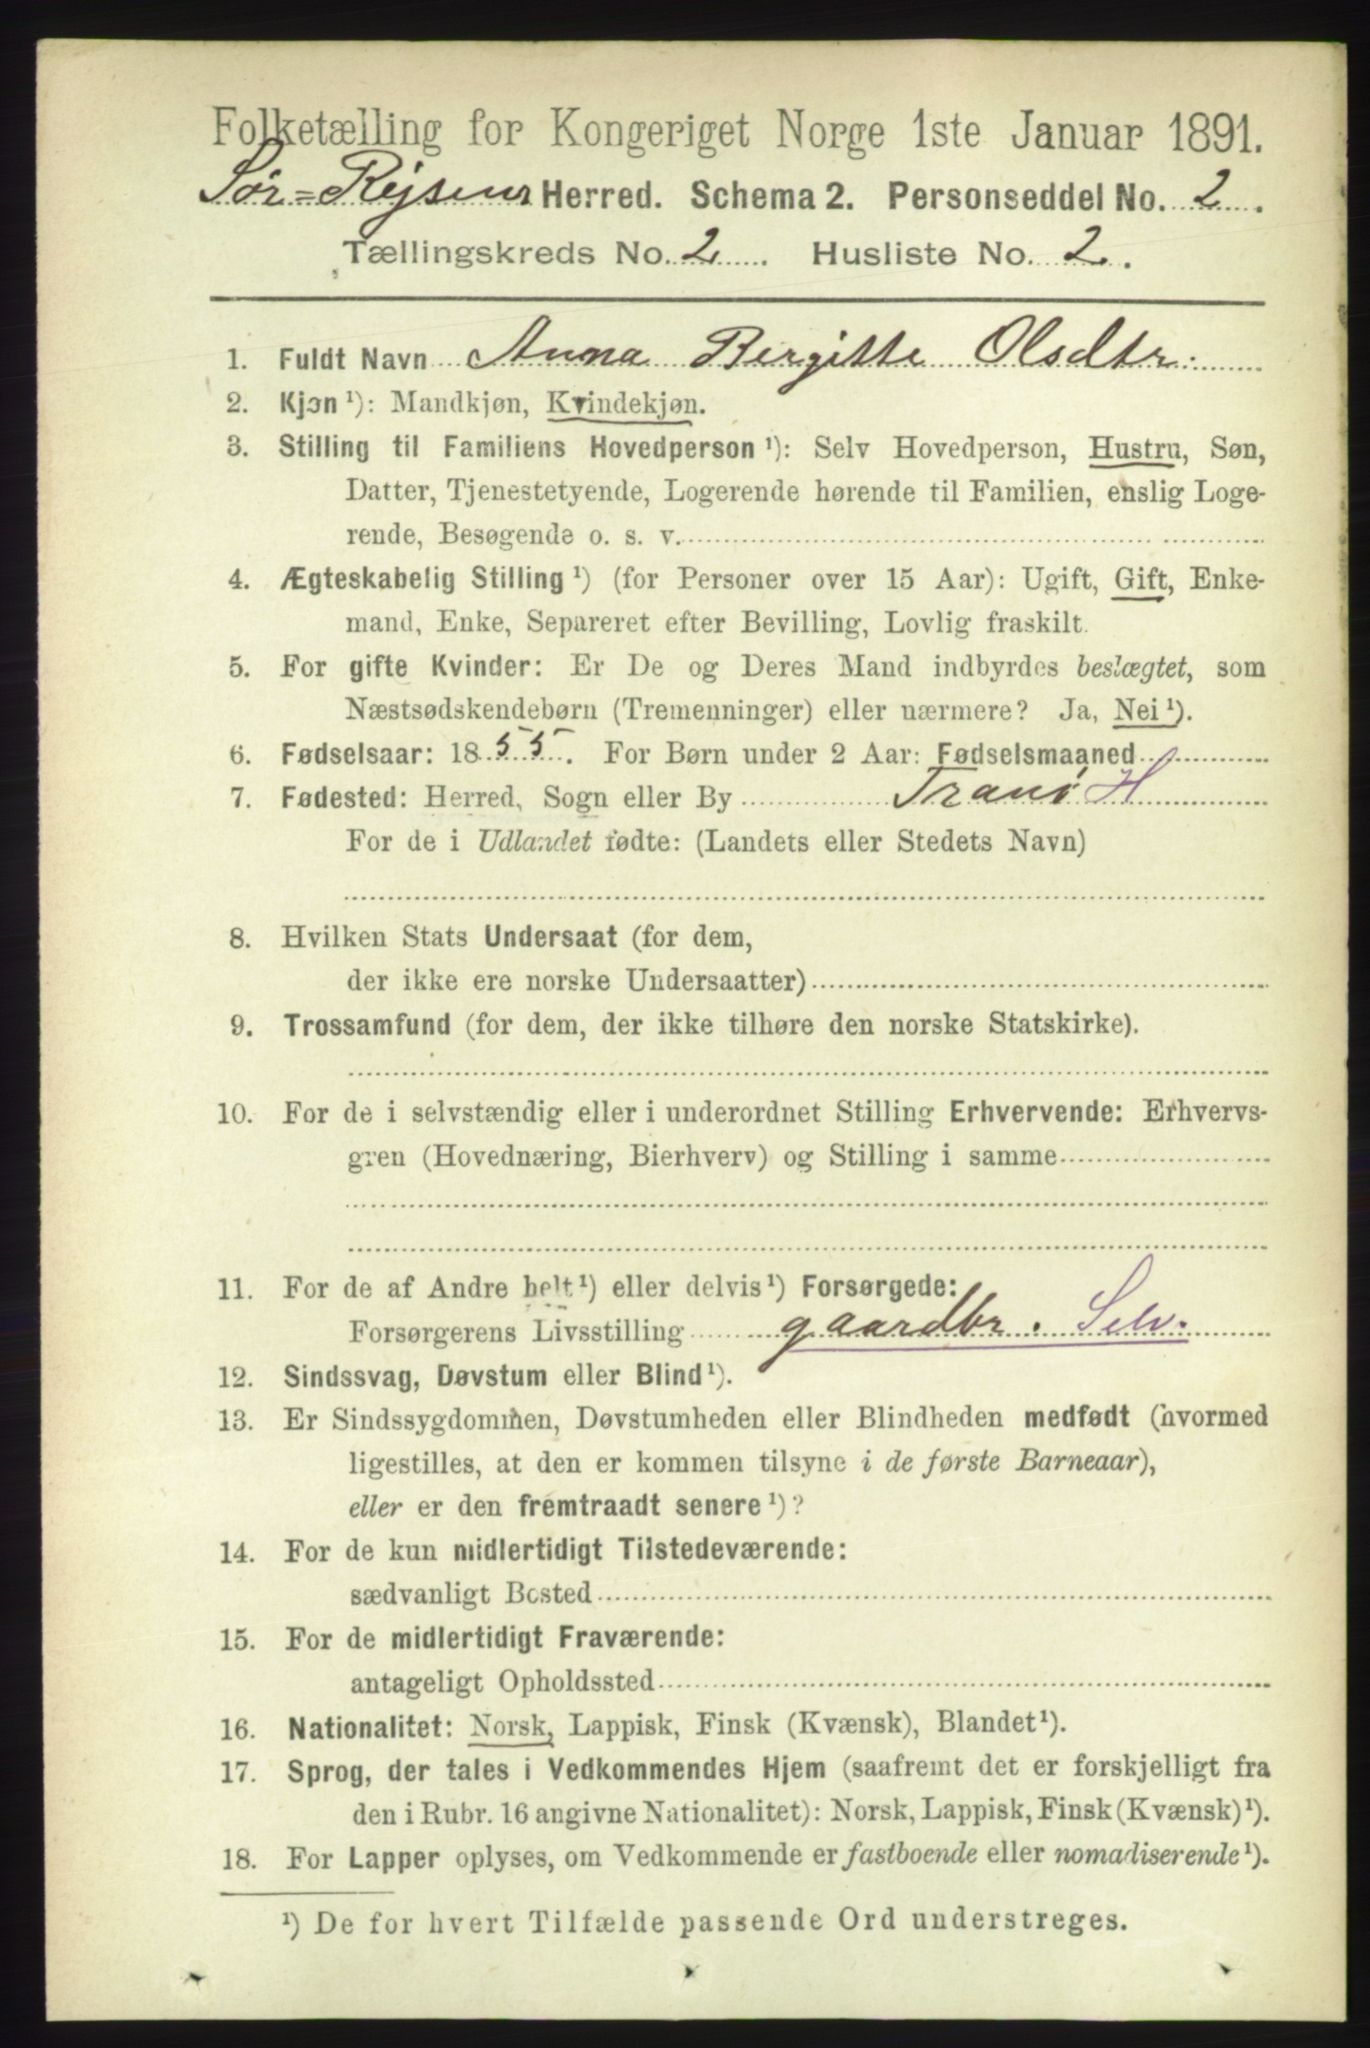 Folketælling for Kongeriget Norge 1ste Januar 1891.
Sør=Rejsens Herred. Schema 2. Personseddel No. 2.
Tællingskreds No. 2. Husliste No. 2.
1. Fuldt Navn Anna Bergitte Olsdtr:
2. Kjøn ¹): Mandkjøn, Kvindekjøn.
3. Stilling til Familiens Hovedperson ¹): Selv Hovedperson, Hustru, Søn,
Datter, Tjenestetyende, Logerende hørende til Familien, enslig Loge-
rende, Besøgende o. s. v.
4. Ægteskabelig Stilling ¹) (for Personer over 15 Aar): Ugift, Gift, Enke-
mand, Enke, Separeret efter Bevilling, Lovlig fraskilt.
5. For gifte Kvinder: Er De og Deres Mand indbyrdes beslægtet, som
Næstsødskendebørn (Tremenninger) eller nærmere? Ja, Nei ¹).
6. Fødselsaar: 1855. For Børn under 2 Aar: Fødselsmaaned
7. Fødested: Herred, Sogn eller By Tranø H
For de i Udlandet fødte: (Landets eller Stedets Navn)
8. Hvilken Stats Undersaat (for dem,
der ikke ere norske Undersaatter)
9. Trossamfund (for dem, der ikke tilhøre den norske Statskirke).
10. For de i selvstændig eller i underordnet Stilling Erhvervende: Erhvervs-
gren (Hovednæring, Bierhverv) og Stilling i samme
11. For de af Andre helt ¹) eller delvis ¹) Forsørgede:
Forsørgerens Livsstilling gaardbr. Selv.
12. Sindssvag, Døvstum eller Blind ¹).
13. Er Sindssygdommen, Døvstumheden eller Blindheden medfødt (hvormed
ligestilles, at den er kommen tilsyne i de første Barneaar),
eller er den fremtraadt senere ¹)?
14. For de kun midlertidigt Tilstedeværende:
sædvanligt Bosted
15. For de midlertidigt Fraværende:
antageligt Opholdssted
16. Nationalitet: Norsk, Lappisk, Finsk (Kvænsk), Blandet ¹).
17. Sprog, der tales i Vedkommendes Hjem (saafremt det er forskjelligt fra
den i Rubr. 16 angivne Nationalitet): Norsk, Lappisk, Finsk (Kvænsk) ¹).
18. For Lapper oplyses, om Vedkommende er fastboende eller nomadiserende ¹).
¹) De for hvert Tilfælde passende Ord understreges.